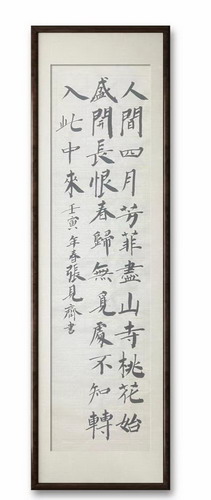 人間四月芳菲盡山寺桃花始
盛開長恨春歸無覓處不知轉
入此中來 壬寅年春張見齋書